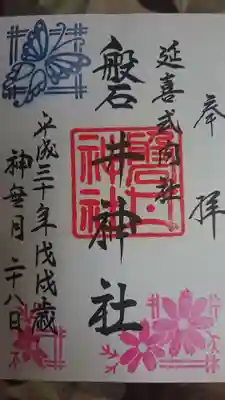 奉拝
延喜式内社
磐井神社
平成三十年戊戌歳
神無月二十八日
磐井
神社